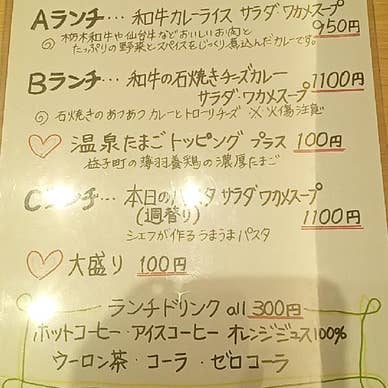 Aランチ… 和牛カレーライス サラダ・ワカメスープ
950円
◎ 栃木和牛や仙台牛などおいしいお肉と
たっぷりの野菜とスパイスをじっくり煮込んだカレーです。
Bランチ… 和牛の石焼きチーズカレー 1100円
サラダ・ワカメスープ
◎ 石焼きのあつあつカレーとトローリチーズ ※火傷注意
♡ 温泉たまごトッピング プラス 100円
益子町の薄羽養鶏の濃厚たまご
Cランチ… 本日のパスタ サラダ・ワカメスープ
(週替り) 1100円
シェフが作るうまうまパスタ
♡ 大盛り 100円
ランチドリンク all 300円
ホットコーヒー・アイスコーヒー オレンジジュース100%
ウーロン茶・コーラ・ゼロコーラ